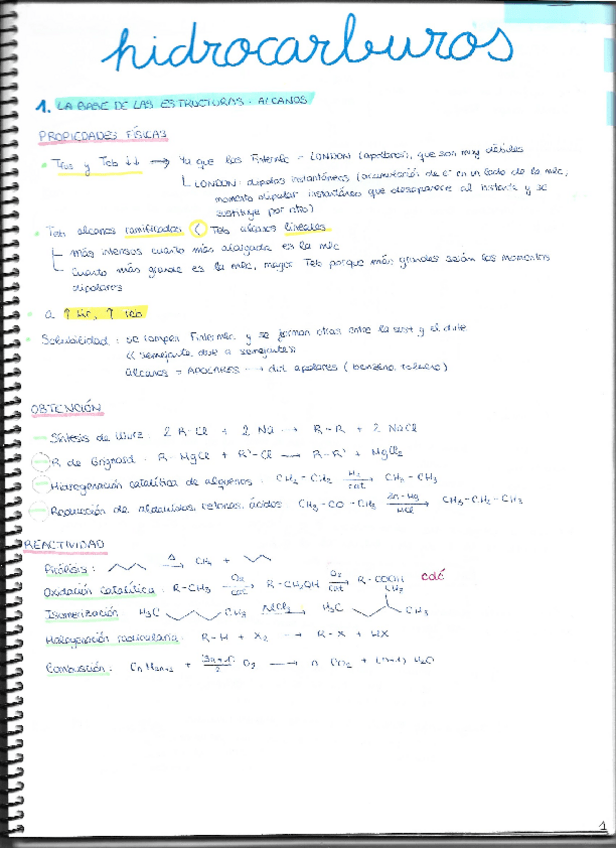 hidrocarburos
1. LA BASE DE LAS ESTRUCTURAS. ALCANOS
PROPIEDADES FÍSICAS
Tfus y Teb ↓↓ → Ya que las F.intermlc - LONDON (apolares), que son muy débiles
LONDON: dipolos instantáneos (acumulación de e⁻ en un lado de la mlc,
momento dipolar instantáneo que desaparece al instante y se
sustituye por otro)
Teb alcanos ramificados < Teb alcanos lineales
más intensas cuanto más alargada es la mlc
Cuanto más grande es la mlc, mayor Teb porque más grandes serán los momentos
dipolares
a ↑ Mr, ↑ Teb
Solubilidad: se rompen F.intermlc. y se forman otras entre la sust y el dvte
<< semejante dvte a semejante >>
alcanos = APOLARES → dvt apolares (benceno, tolueno)
OBTENCIÓN
Síntesis de Wurz: 2 R-Cl + 2 Na → R-R + 2 NaCl
R de Grignard: R-MgCl + R'-Cl → R-R' + MgCl₂
Hidrogenación catalítica de alquenos: CH₂=CH₂ H₂ cat → CH₃-CH₃
Reducción de aldehídos, cetonas, ácidos CH₃-CO-CH₃ Zn-Hg HCl → CH₃-CH₂-CH₃
REACTIVIDAD
Pirólisis: Δ → CH₄ +
Oxidación catalítica: R-CH₃ O₂ cat → R-CH₂OH O₂ cat → R-COOH cdc
Isomerización H₃C CH₃ AlCl₃ → H₃C CH₃ CH₃
Halogenación radicalaria: R-H + X₂ → R-X + HX
Combustión: CnH2n+2 + 3n+1/2 O₂ → n CO₂ + (n+1) H₂O
1